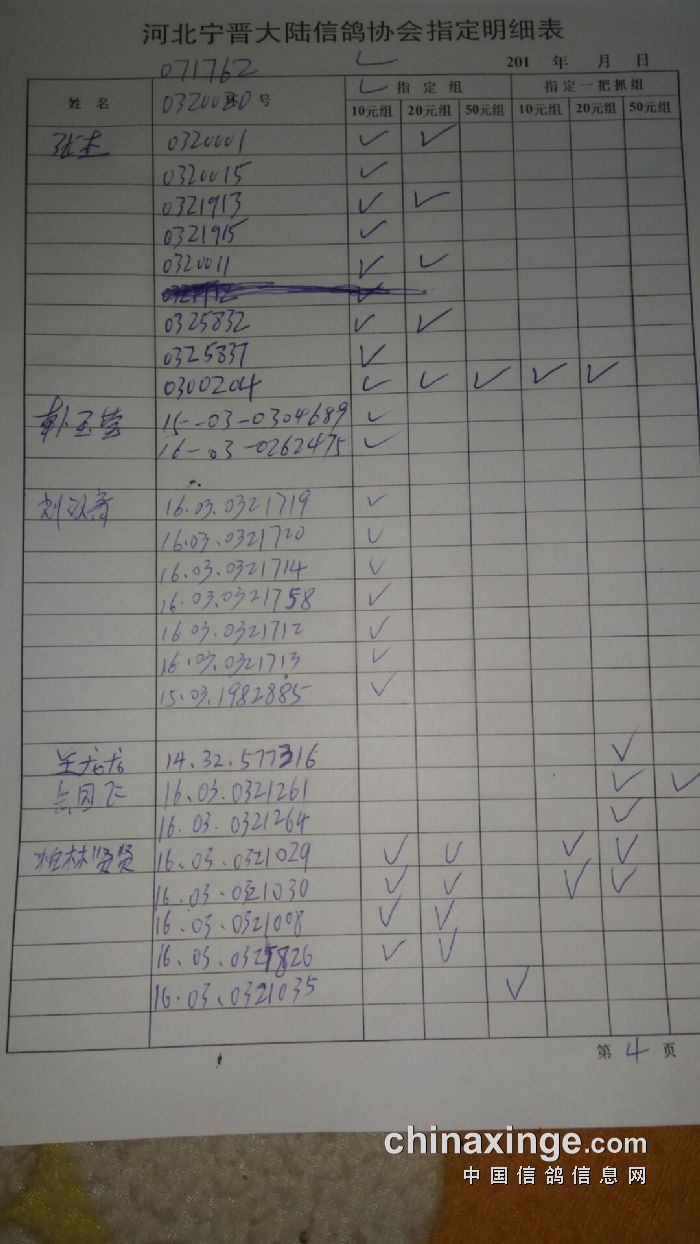 河北宁晋大陆信鸽协会指定明细表
071762 ✓
201 年 月 日
姓 名 环 号 指 定 组 指 定 一 把 抓 组
0320080 ✓
10元组 20元组 50元组 10元组 20元组 50元组
0320001 ✓ ✓
0320015 ✓
0321913 ✓ ✓
0321915 ✓
0320011 ✓ ✓
✓
0325832 ✓ ✓
0325837 ✓
0300204 ✓ ✓ ✓ ✓ ✓
15-03-0304689 ✓
16-03-0262475 ✓
16.03.0321719 ✓
16.03.0321720 ✓
16.03.0321714 ✓
16.03.0321758 ✓
16.03.0321712 ✓
16.03.0321713 ✓
15.03.1982885 ✓
14.32.577316 ✓
16.03.0321261 ✓ ✓
16.03.0321264 ✓
柏林贤贤 16.03.0321029 ✓ ✓ ✓ ✓
16.03.0321030 ✓ ✓ ✓ ✓
16.03.0321008 ✓ ✓
16.03.0325826 ✓ ✓
16.03.0321035 ✓
第 4 页
chinaxinge.com
中国信鸽信息网